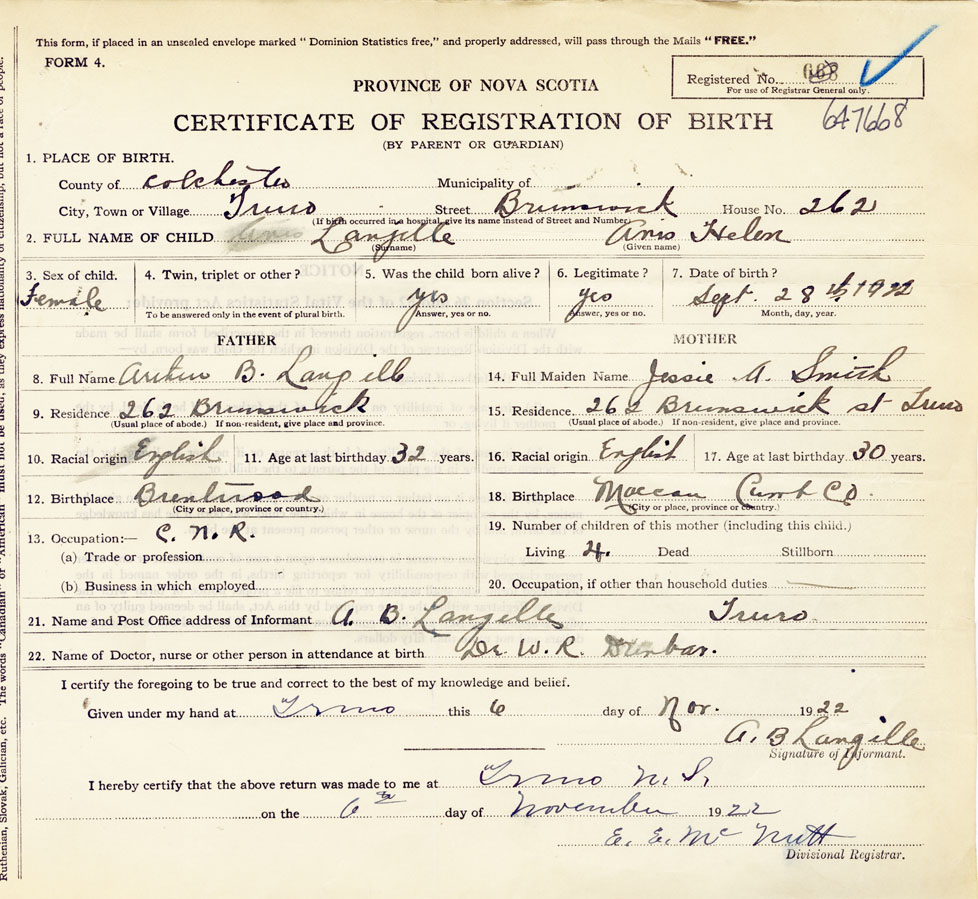 This form, if placed in an unsealed envelope marked "Dominion Statistics free," and properly addressed, will pass through the Mails "FREE."
FORM 4.
PROVINCE OF NOVA SCOTIA
Registered No. 668
For use of Registrar General only.
CERTIFICATE OF REGISTRATION OF BIRTH
647668
(BY PARENT OR GUARDIAN)
1. PLACE OF BIRTH.
County of Colchester Municipality of
City, Town or Village Truro Street Brunswick House No. 262
(If birth occurred in a hospital, give its name instead of Street and Number)
2. FULL NAME OF CHILD Langille Avis Helen
(Surname) (Given name)
3. Sex of child. 4. Twin, triplet or other? 5. Was the child born alive? 6. Legitimate? 7. Date of birth?
Female yes yes Sept. 28th 1922
To be answered only in the event of plural birth. Answer, yes or no. Answer, yes or no. Month, day, year.
FATHER MOTHER
8. Full Name Arthur B. Langille 14. Full Maiden Name Jessie A. Smith
9. Residence 262 Brunswick 15. Residence. 262 Brunswick st Truro
(Usual place of abode.) If non-resident, give place and province. (Usual place of abode.) If non-resident, give place and province.
10. Racial origin English 11. Age at last birthday 32 years. 16. Racial origin English 17. Age at last birthday 30 years.
12. Birthplace Brentwood 18. Birthplace Maccan Cumb Co.
(City or place, province or country.) (City or place, province or country.)
13. Occupation:— C. N. R. 19. Number of children of this mother (including this child.)
(a) Trade or profession Living 4. Dead Stillborn
(b) Business in which employed 20. Occupation, if other than household duties
21. Name and Post Office address of Informant A. B. Langille Truro.
22. Name of Doctor, nurse or other person in attendance at birth Dr. W. R. Dunbar.
I certify the foregoing to be true and correct to the best of my knowledge and belief.
Given under my hand at Truro this 6 day of Nov. 1922
A. B Langille
Signature of Informant.
I hereby certify that the above return was made to me at Truro N. S.
on the 6th day of November 1922
E. E. McNutt
Divisional Registrar.
Ruthenian, Slovak, Galician, etc. The words "Canadian" or "American" must not be used, as they express nationality or citizenship, but not a race of people.